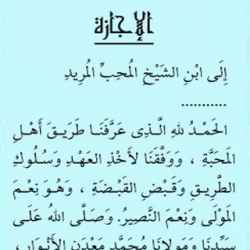 الإجازة
إِلَى ابْنِ الشَّيْخِ المُحِبِّ المُرِيدِ
...........
الحَمْدُ للهِ الَّذِى عَرَّفَنَا طَرِيقَ أَهْلِ
المَحَبَّةِ ، وَوَفَّقَنَا لأَخْذِ العَهْدِ وَسُلُوكِ
الطَّرِيقِ وَقَبْضِ القَبْضَةِ ، وَهُوَ نِعْمَ
المَوْلَى وَنِعْمَ النَّصِيرُ. وَصَلَّى اللهُ عَلَى
سَيِّدِنَا وَمَوْلانَا مُحَمَّدٍ مَعْدِنِ الأَنْوَارِ ،